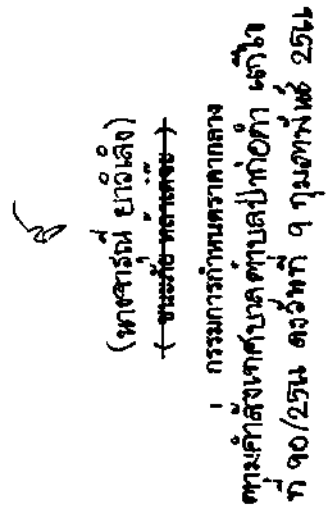 (นางจารุณี ยาวิเลิง)
กรรมการกำหนดราคากลาง
ตามคำสั่งเทศบาลตำบลป่าก่อดำ แก้ไข
ที่ 90/2566 ลงวันที่ 9 กุมภาพันธ์ 2566